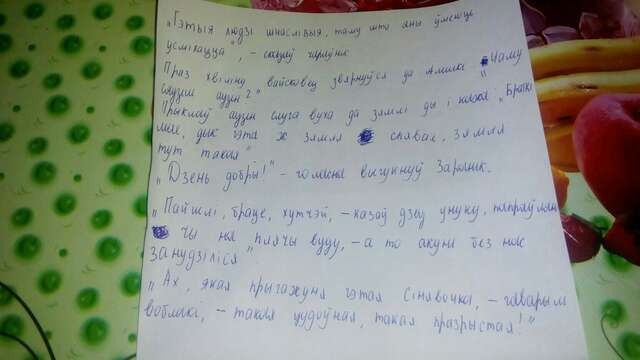 „Гэтыя людзі шчаслівыя, таму што яны ўмеюць
усміхацца", – сказаў чарлўнік
Праз хвіліну вайсковец звярнуўся да Аўзін „Чаму
адзін
Прыклаў адзін слуга вуха да зямлі ды і кажа „Браткі
мае, дык гэта ж зямля спявае. Зямля
тут такая"
„Дзень добры!" – голасна выгукнуў Зарынік.
„Пайшлі, браце, хутчэй, – казаў дзед унуку,
чы на плячы вуду, – а то акуні без нас
занудзіліся"
„Ах, якая прыгажуня гэтая Сінявочка, – гаварылі
воблакі, – такая цудоўная, такая празрыстая!"